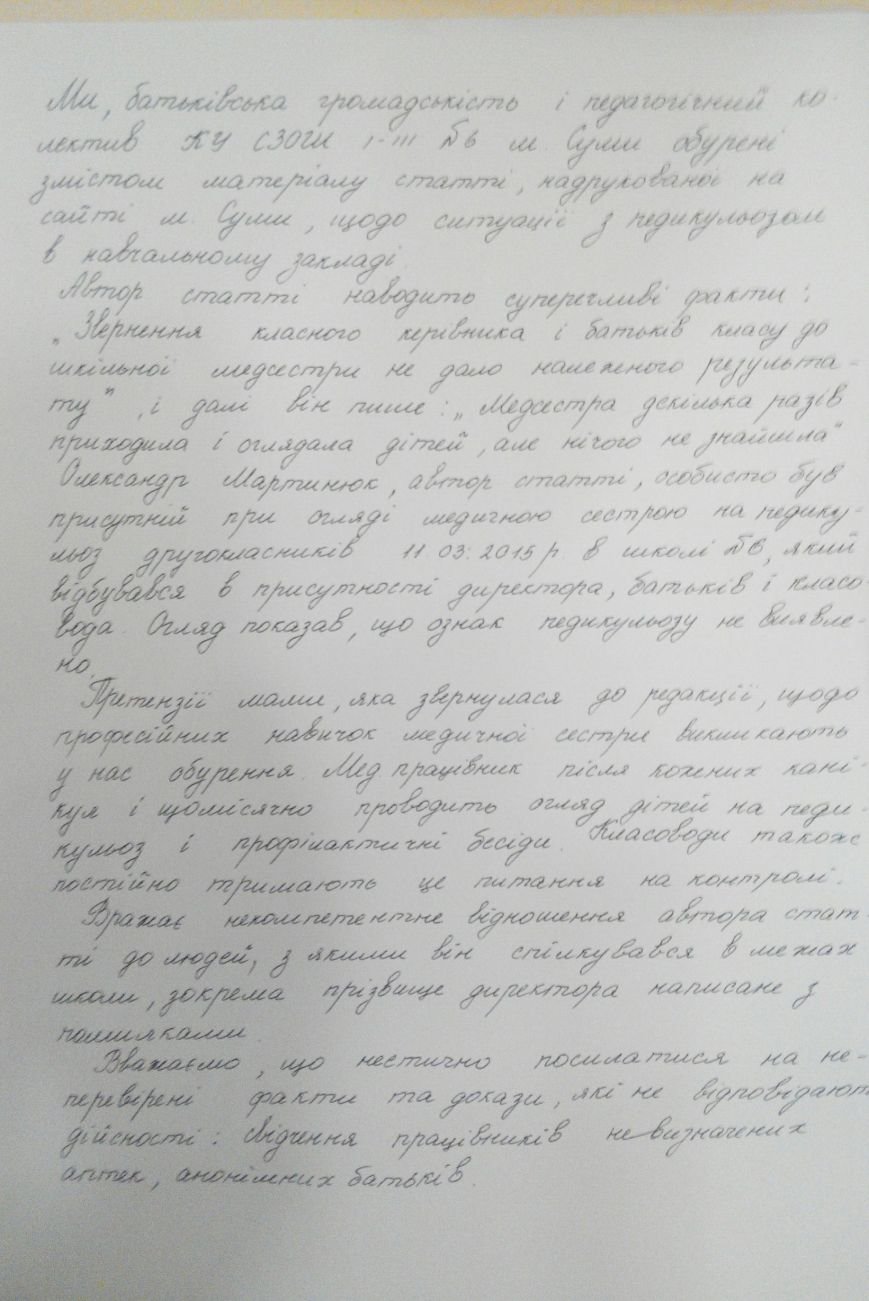 Ми, батьківська громадськість і педагогічний ко-
лектив КУ СЗОШ І-ІІІ №6 м. Суми обурені
змістом матеріалу статті, надрукованої на
сайті м. Суми, щодо ситуації з педикульозом
в навчальному закладі.
Автор статті наводить суперечливі факти:
„Звернення класного керівника і батьків класу до
шкільної медсестри не дало належного результа-
ту", і далі він пише: „Медсестра декілька разів
приходила і оглядала дітей, але нічого не знайшла"
Олександр Мартинюк, автор статті, особисто був
присутній при огляді медичною сестрою на педику-
льоз другокласників 11.03.2015р. в школі №6, який
відбувався в присутності директора, батьків і класо-
вода. Огляд показав, що ознак педикульозу не виявле-
но.
Претензії мами, яка звернулася до редакції, щодо
професійних навичок медичної сестри викликають
у нас обурення. Мед працівник після кожних кані-
кул і щомісячно проводить огляд дітей на педи-
кульоз і профілактичні бесіди. Класоводи також
постійно тримають це питання на контролі.
Вражає некомпетентне відношення автора стат-
ті до людей, з якими він спілкувався в межах
школи, зокрема прізвище директора написане з
помилками.
Вважаємо, що неетично посилатися на не-
перевірені факти та докази, які не відповідають
дійсності: свідчення працівників невизначених
аптек, анонімних батьків.